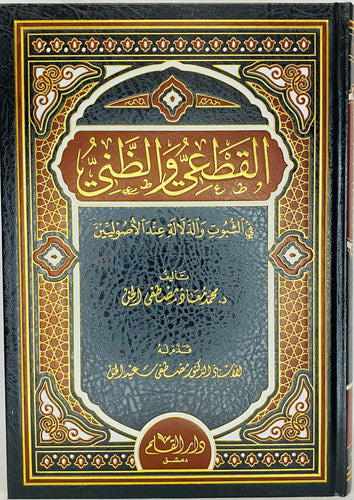 القطعيّ والظنّيّ
في الثبوت والدلالة عند الأصوليين
تأليف
د. محمد معاذ مصطفى الخن
قدم له
الأستاذ الدكتور مصطفى سعيد الخن
دار القلم
دمشق